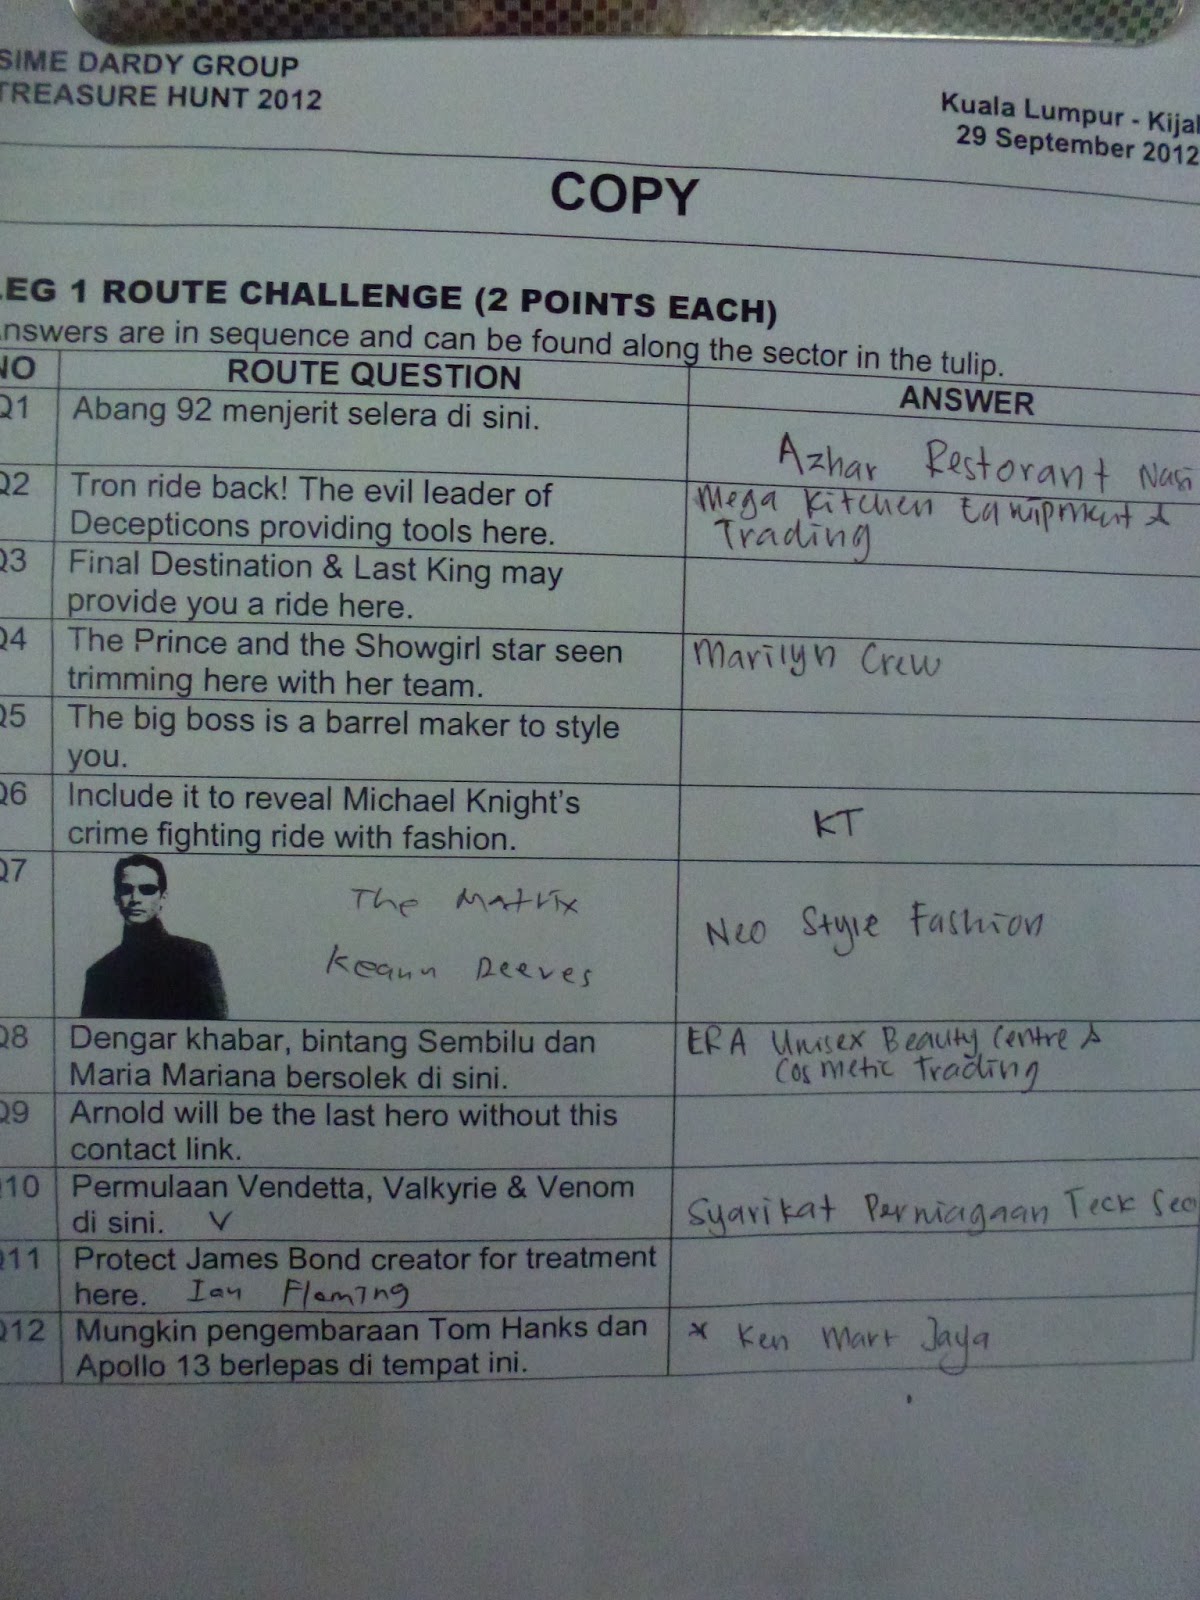 SIME DARDY GROUP
TREASURE HUNT 2012
Kuala Lumpur - Kijal
29 September 2012
COPY
LEG 1 ROUTE CHALLENGE (2 POINTS EACH)
Answers are in sequence and can be found along the sector in the tulip.
NO ROUTE QUESTION ANSWER
Q1 Abang 92 menjerit selera di sini.
Azhar Restorant Nasi
Q2 Tron ride back! The evil leader of
Decepticons providing tools here.
Mega Kitchen Equipment &
Trading
Q3 Final Destination & Last King may
provide you a ride here.
Q4 The Prince and the Showgirl star seen
trimming here with her team.
Marilyn Crew
Q5 The big boss is a barrel maker to style
you.
Q6 Include it to reveal Michael Knight's
crime fighting ride with fashion.
KT
Q7
The Matrix
Keann Reeves
Neo Style Fashion
Q8 Dengar khabar, bintang Sembilu dan
Maria Mariana bersolek di sini.
ERA Unisex Beauty Centre &
Cosmetic Trading
Q9 Arnold will be the last hero without this
contact link.
Q10 Permulaan Vendetta, Valkyrie & Venom
di sini. V
Syarikat Perniagaan Teck Seo
Q11 Protect James Bond creator for treatment
here. Ian Flaming
Q12 Mungkin pengembaraan Tom Hanks dan
Apollo 13 berlepas di tempat ini.
* Ken Mart Jaya